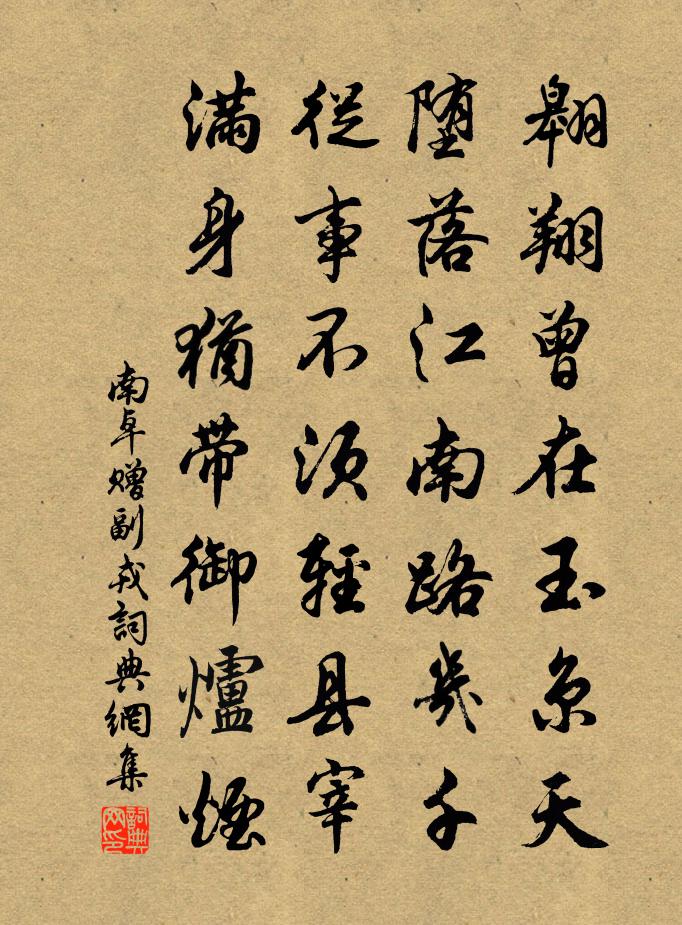 翱翔曾在玉京天
堕落江南路幾千
從事不須輕县宰
滿身猶帶御爐煙
南卓贈副戎詞典網集
詞典网印